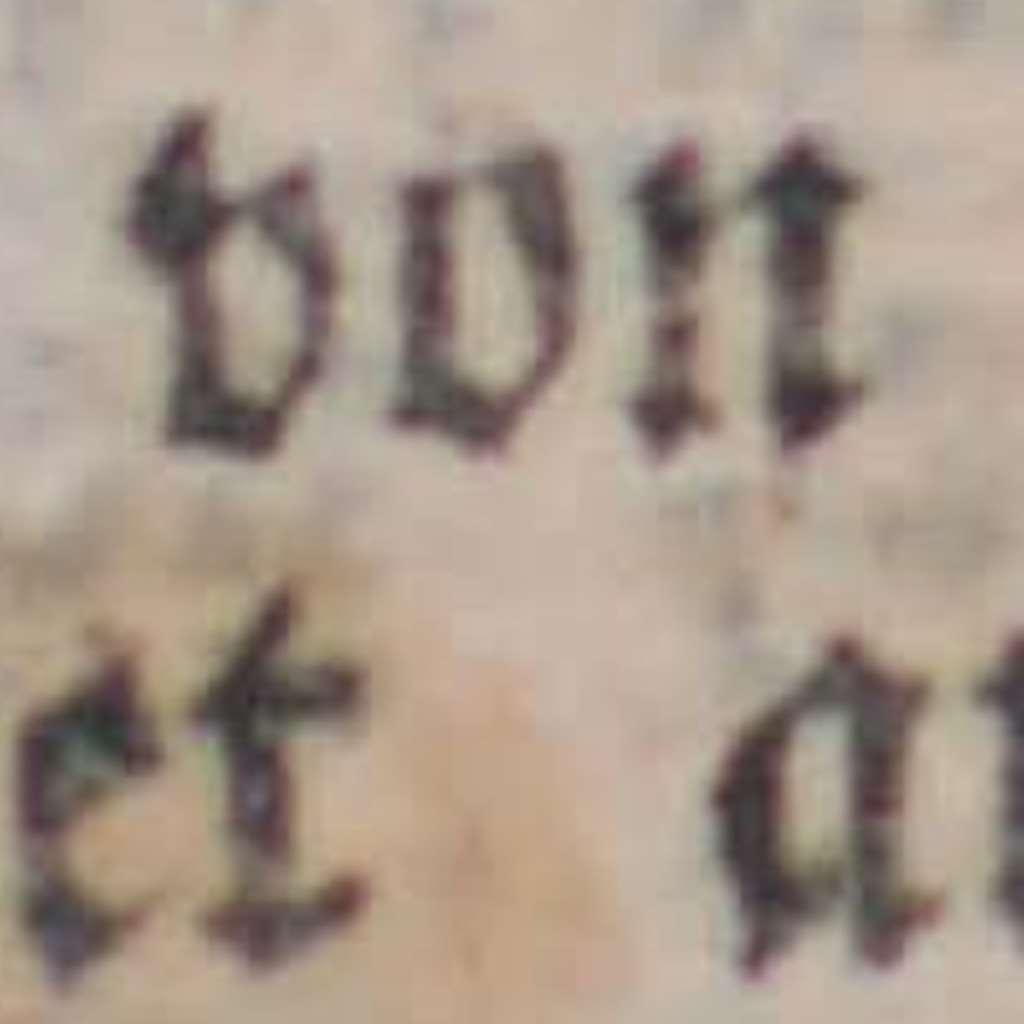 von
et a